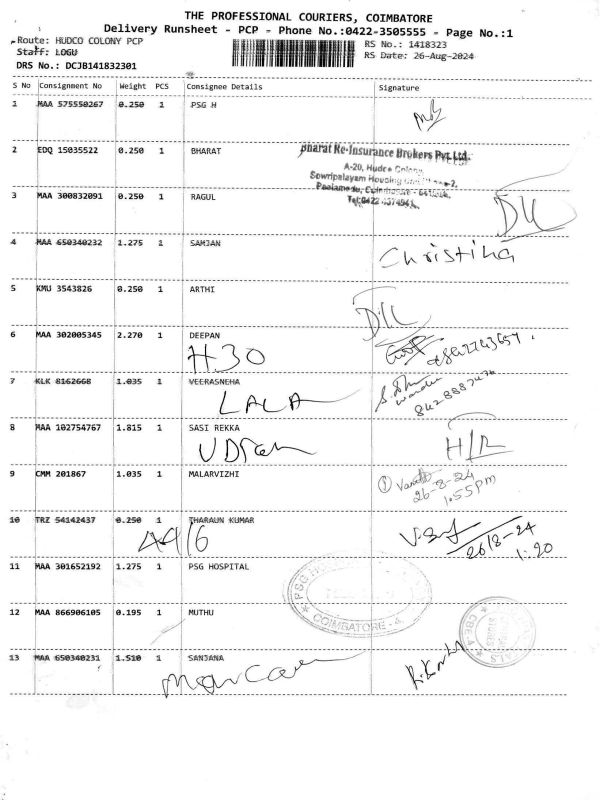 THE PROFESSIONAL COURIERS, COIMBATORE
Delivery Runsheet - PCP - Phone No.:0422-3505555 - Page No.:1
Route: HUDCO COLONY PCP
RS No.: 1418323
Staff: LOGU
RS Date: 26-Aug-2024
DRS No.: DCJB141832301
S No Consignment No Weight PCS Consignee Details Signature
1 MAA 575550267 0.250 1 PSG H
2 EDQ 15035522 0.250 1 BHARAT
Bharat Re-Insurance Brokers Pvt. Ltd.
A-20, Hudco Colony,
Sowripalayam Housing
3 MAA 300832091 0.250 1 RAGUL
4 MAA 650340232 1.275 1 SAMJAN Christina
5 KMU 3543826 0.250 1 ARTHI
6 MAA 302005345 2.270 1 DEEPAN
H.30
7 KLK 8162668 1.035 1 VEERASNEHA
LALA
8 MAA 102754767 1.815 1 SASI REKKA
H/R
9 CMM 201867 1.035 1 MALARVIZHI
26-8-24
1.55pm
10 TRZ 54142437 0.250 1 THARAUN KUMAR
26/8-24
1:20
11 MAA 301652192 1.275 1 PSG HOSPITAL
PSG HOSPITALS
COIMBATORE - 4.
12 MAA 866906105 0.195 1 MUTHU
13 MAA 650340231 1.510 1 SANJANA